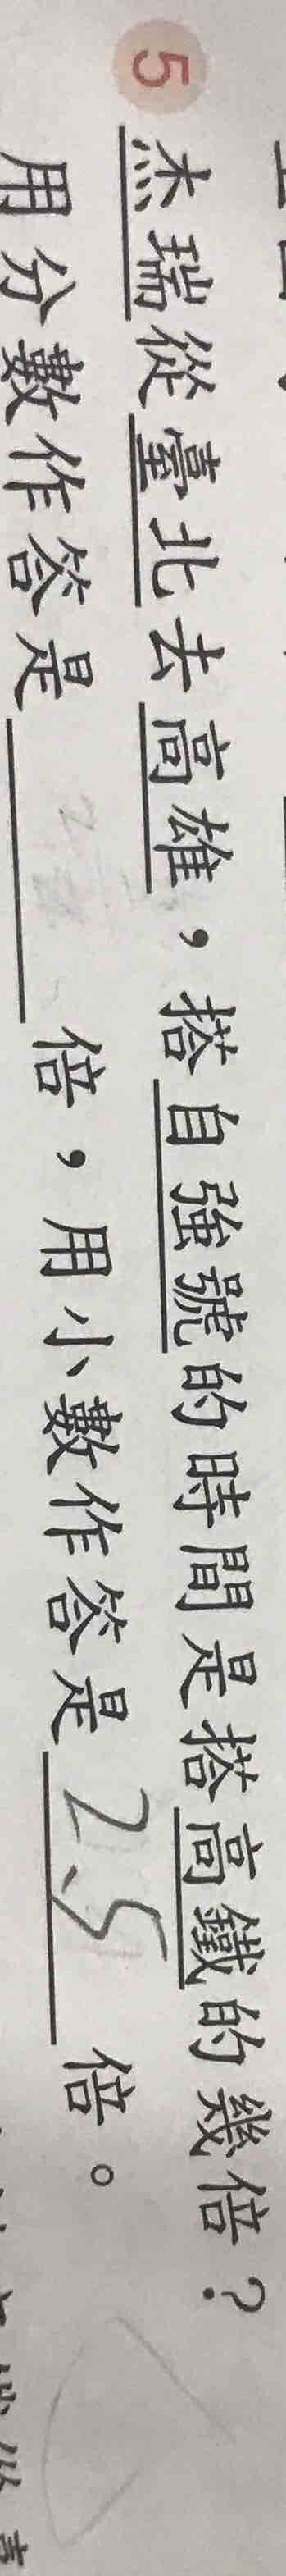 5 杰瑞從臺北去高雄，搭自強號的時間是搭高鐵的幾倍？
用分數作答是 倍，用小數作答是 2.5 倍。